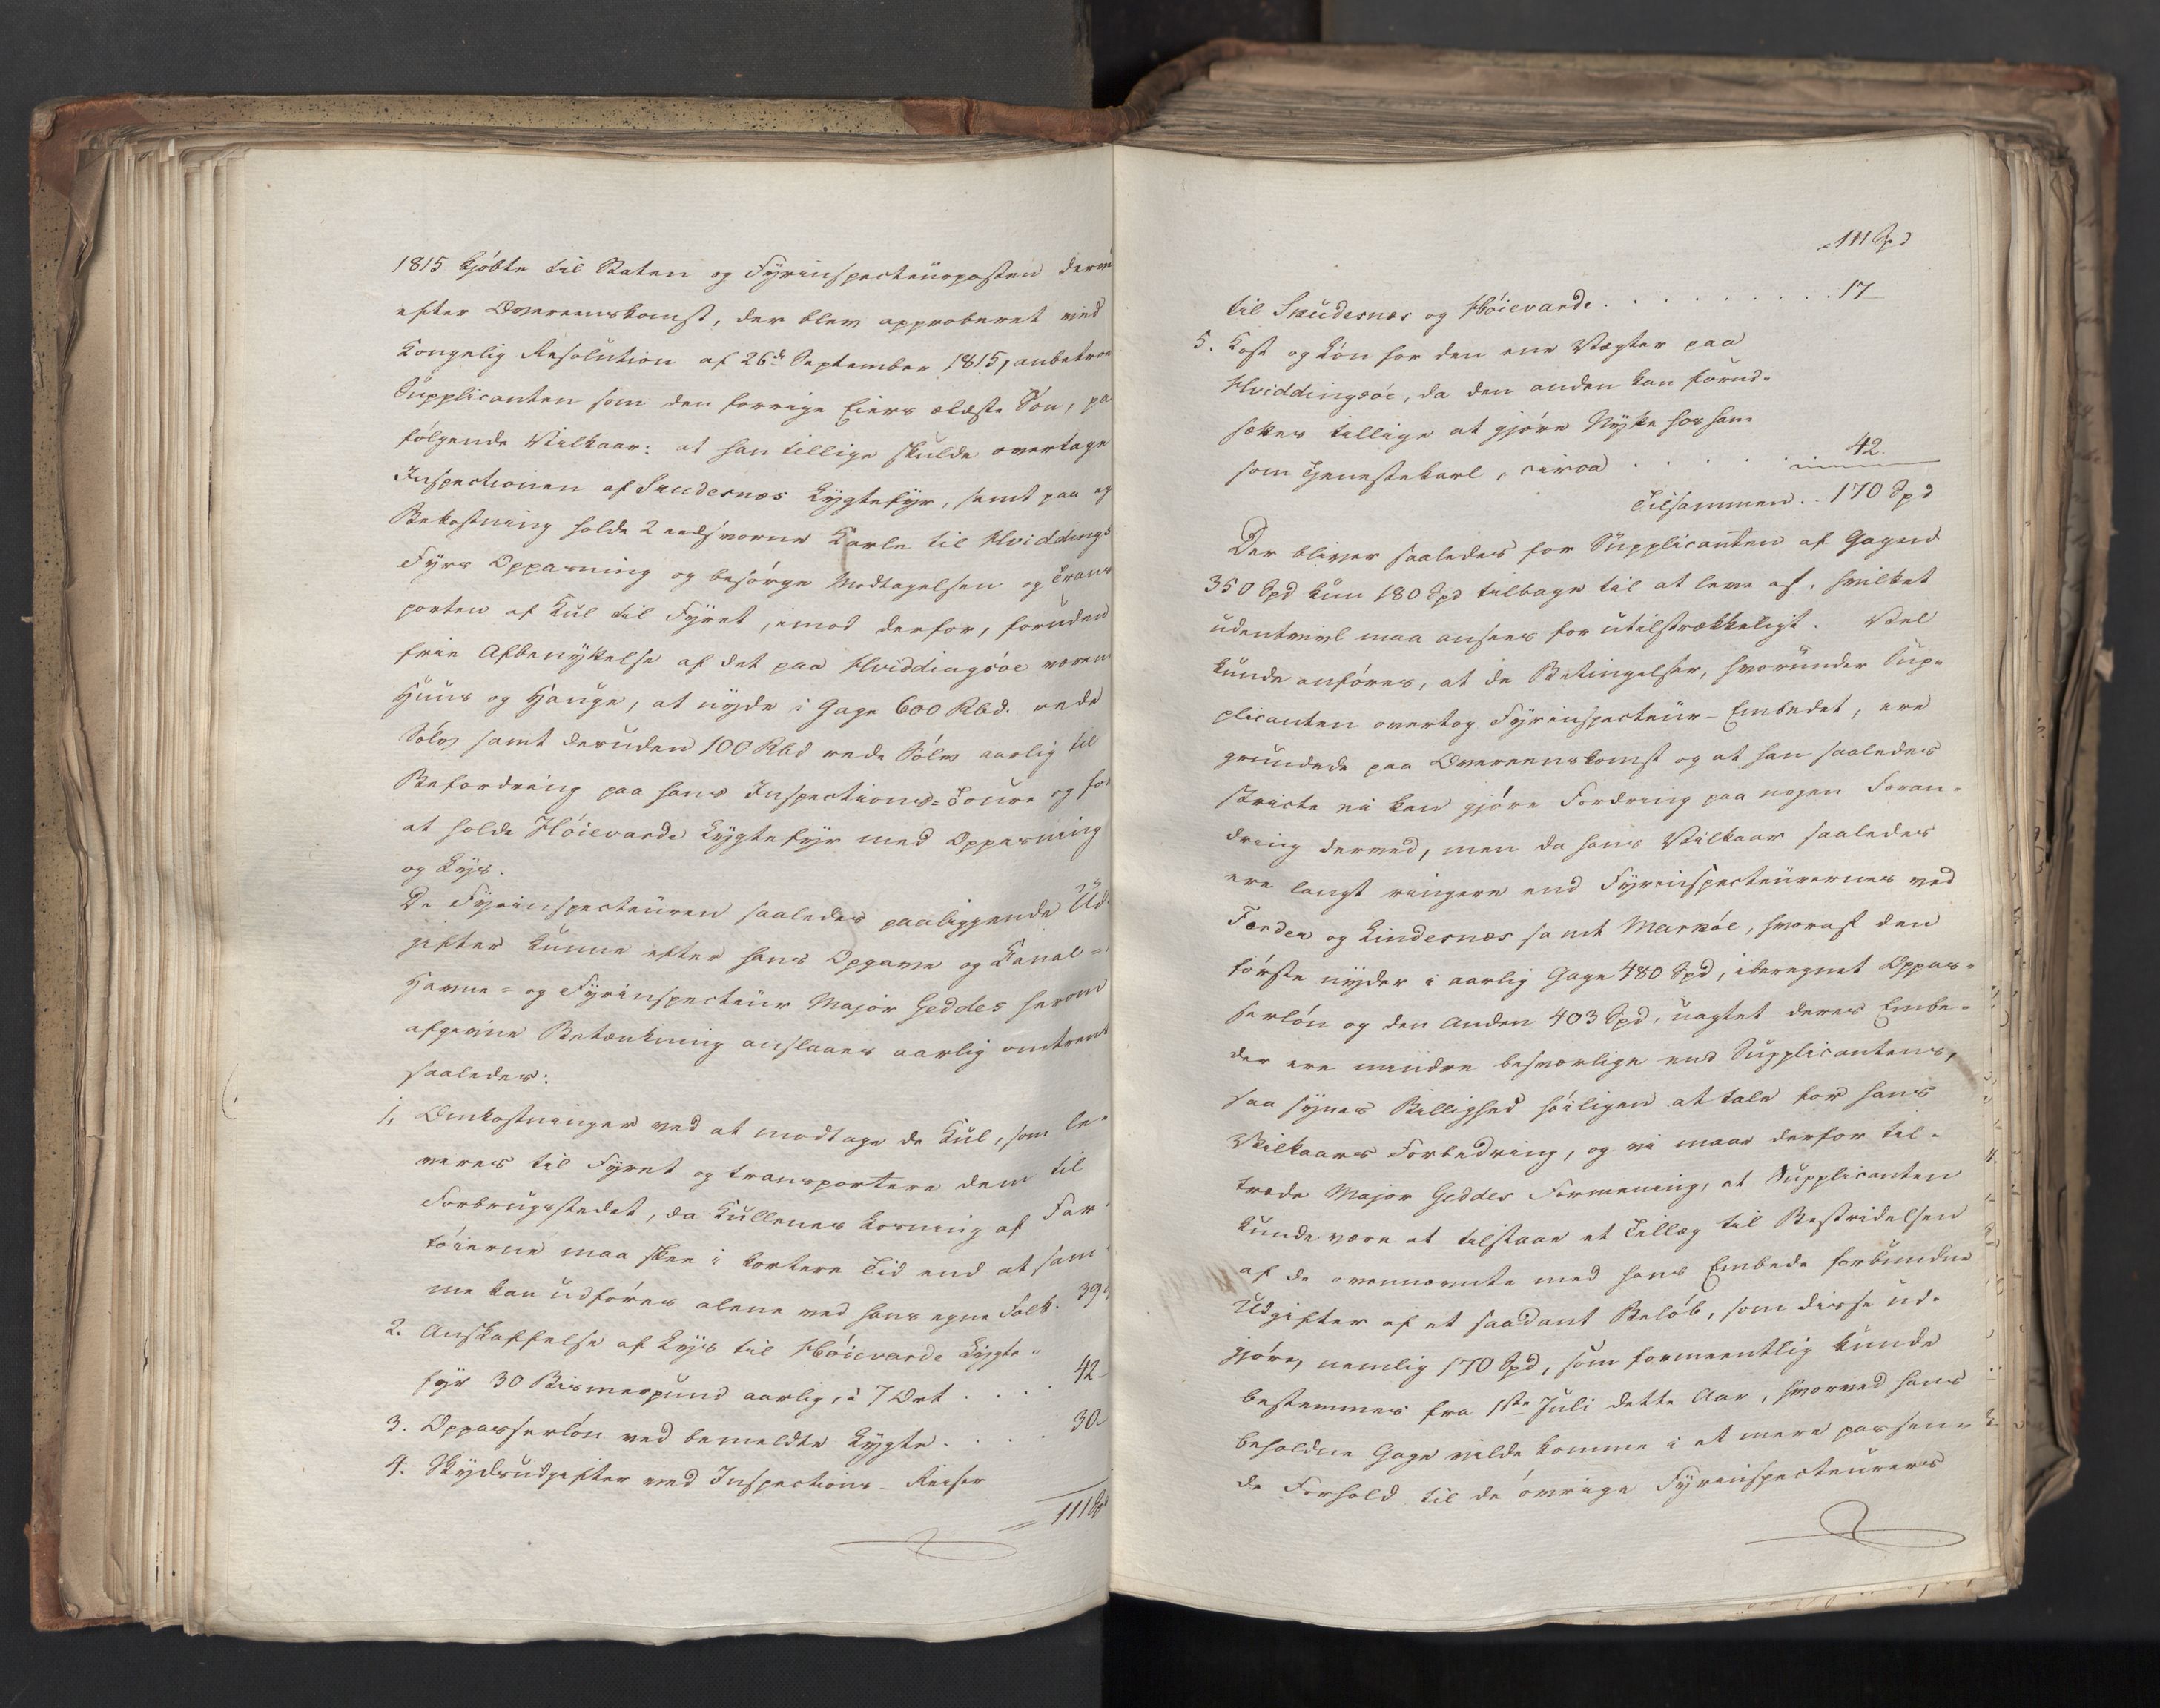 1815 kjöbte til Staten og Fyrinspecteurposten
efter Overeenskomst, der blev approberet ved
Kongelig Resolution af 26de September 1815, anbetroet
Supplicanten som den forrige Eiers ældste Sön, paa
fölgende Vilkaar: at han tillige skulde overtage
Inspectionen af Scudesnæs Lygtefyr, samt paa
Bekostning holde 2 eedsvorne Karle til Hviddings
Fyrs Oppasning og besörge Modtagelsen og Trans
porten af Kul til Fyret, imod derfor, foruden
frie Afbenyttelse af det paa Hviddingsöe
Huus og Hauge, at nyde i Gage 600 Rbd. rede
Sölv samt desuden 100 Rbd rede Sölv aarlig til
Befordring paa hans Inspections-Toure og for
at holde Höievarde Lygtefyr med Oppasning
og Lys.
De Fyrinspecteuren saaledes paaliggende Ud-
gifter kunne efter hans Opgave og Kanal-
Havne- og Fyrinspecteur Major Geddes herom
afgivne Betænkning anslaaes aarlig omtrent
saaledes:
1, Omkostninger ved at modtage de Kul, som le-
veres til Fyret og transportere dem til
Forbrugsstedet, da Kullenes Losning af Far-
töierne maa skee i kortere Tid end at sam-
me kan udföres alene ved hans egne Folk. 39
2. Anskaffelse af Lys til Höievarde Lygte-
fyr 30 Bismerpund aarlig, à 7 Ort . . . . 42-
3. Oppasserlön ved bemeldte Lygte . . . . 30
4. Skydsudgifter ved Inspections-Reiser
111 Spd
111 Spd
til Scudesnæs og Höievarde . . . . . . . . . . 17
5. Kost og Lön for den ene Vægter paa
Hviddingsöe, da den anden kan forud-
sættes tillige at gjöre Nytte hos ham
som Tjenestekarl, circa . . . . . . 42.
Tilsammen . . 170 Spd
Der bliver saaledes for Supplicanten af Gagens
350 Spd kun 180 Spd tilbage til at leve af, hvilket
udentvivl maa ansees for utilstrækkeligt. Vel
kunde anföres, at de Betingelser, hvorunder Sup-
plicanten overtog Fyrinspecteur-Embedet, ere
grundede paa Overeenskomst og at han saaledes
stricte ei kan gjöre Fordring paa nogen Foran-
dring derved, men da hans Vilkaar saaledes
ere langt ringere end Fyrinspecteurernes ved
Færder og Lindesnæs samt Markøe, hvoraf den
förste nyder i aarlig Gage 480 Spd, iberegnet Oppas-
serlön og den Anden 403 Spd, uagtet deres Embe-
der ere mindre besværlige end Supplicantens,
saa synes Billighed höiligen at tale for hans
Vilkaars Forbedring, og vi maae derfor til-
træde Major Geddes Formening, at Supplicanten
kunde være at tilstaae et Tillæg til Bestridelsen
af de ovennævnte med hans Embede forbundne
Udgifter af et saadant Belöb, som disse ud-
gjöre, nemlig 170 Spd, som formeentlig kunde
bestemmes fra 1ste Juli dette Aar, hvorved hans
beholdne Gage vilde komme i et mere passen-
de Forhold til de övrige Fyrinspecteurers